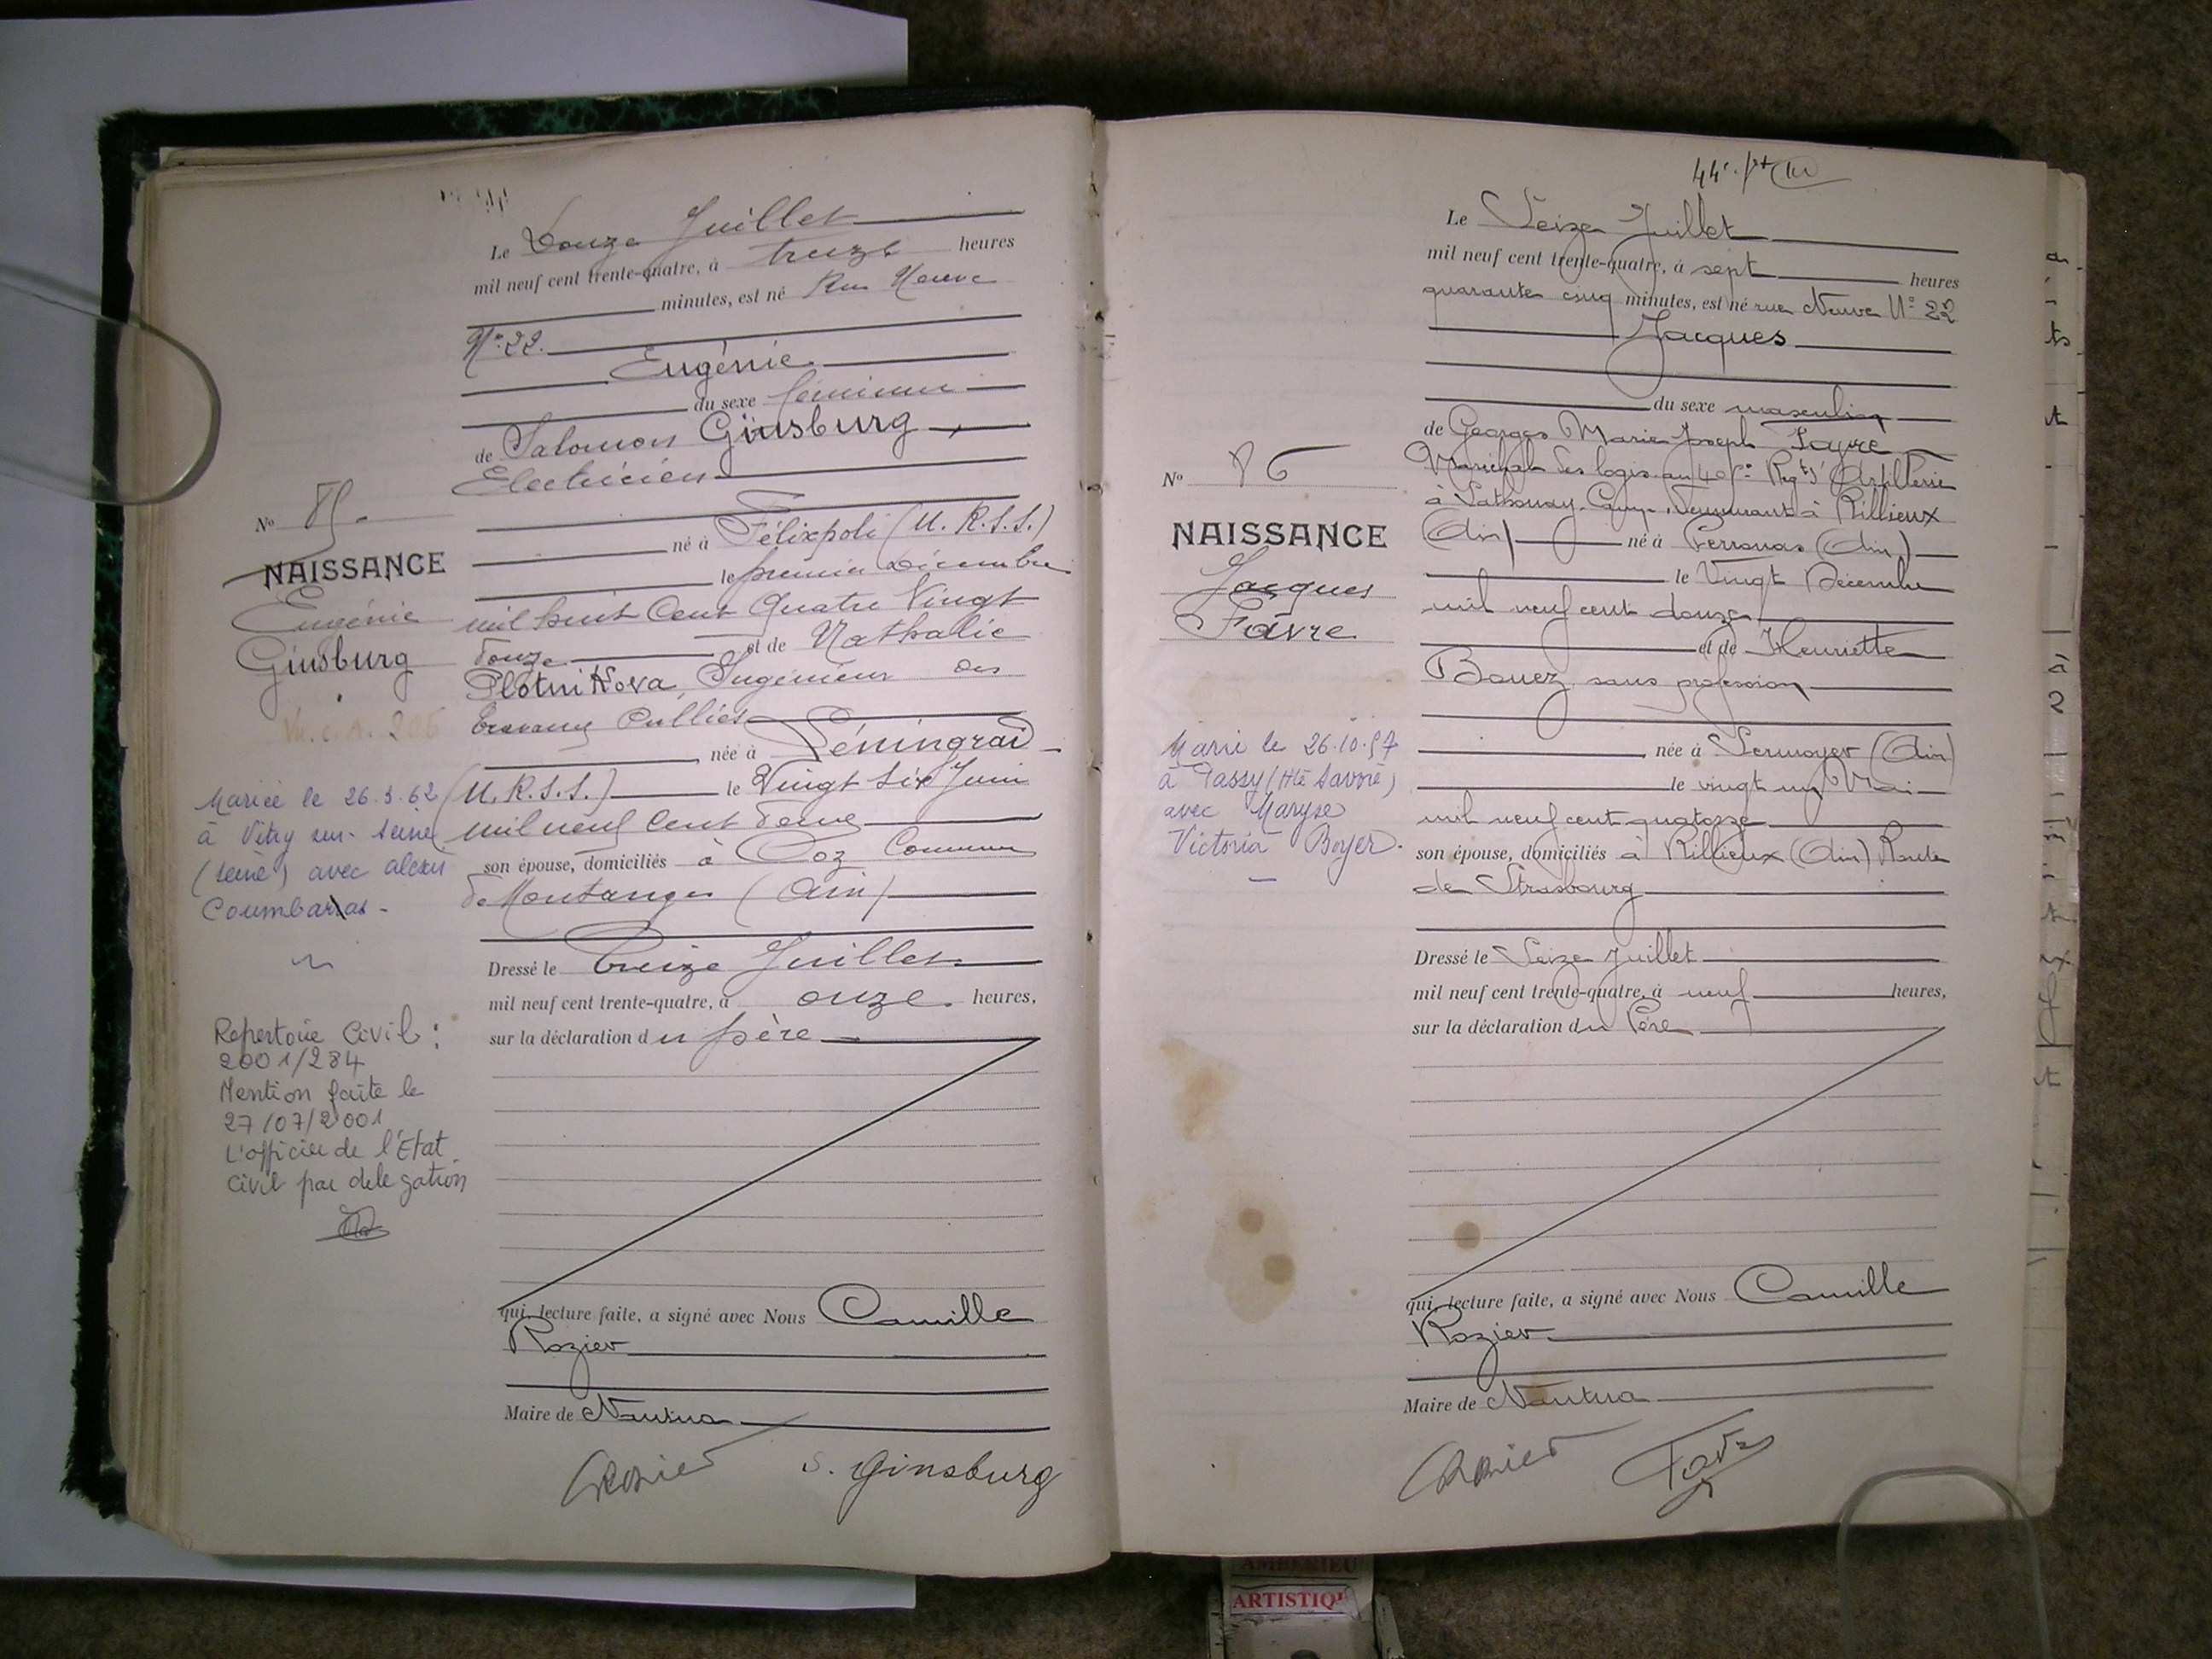 Le Douze Juillet
mil neuf cent trente-quatre, à treize heures
minutes, est né Rue Neuve
N° 22.
Eugénie
du sexe féminin
de Salomon Ginsburg
Electricien
né à Félixpoli (U.R.S.S.)
le premier Décembre
mil huit Cent Quatre Vingt
douze et de Nathalie
Plotnikova, Ingénieur des
travaux Publics
née à Léningrad
(U.R.S.S.) le Vingt Six Juin
mil neuf Cent
son épouse, domiciliés à Coz Commune
de Montanges (Ain)
Dressé le treize Juillet
mil neuf cent trente-quatre, à onze heures,
sur la déclaration du père
qui, lecture faite, a signé avec Nous Camille
Rozier
Maire de Nantua
S. Ginsburg
N° 85.
NAISSANCE
Eugénie
Ginsburg
Mariée le 26.5.62
à Vitry sur-Seine
(Seine) avec alexis
Coumbaras -
Repertoire Civil :
2001/284
Mention faite le
27/07/2001
L'officier de l'Etat
Civil par délegation
Le Seize Juillet
mil neuf cent trente-quatre, à sept heures
quarante cinq minutes, est né rue Neuve N° 22
Jacques
du sexe masculin
de Georges Marie Joseph Favre
Maréchal des logis au Regt d'Artillerie
à Sathonay-Camp, demeurant à Rillieux
(Ain) né à Perronas (Ain)
le Vingt Décembre
mil neuf cent douze
et de Henriette
Bouez sans profession
née à Sermoyer (Ain)
le vingt un Mai
mil neuf cent quatorze
son épouse, domiciliés à Rillieux (Ain) Route
de Strasbourg
Dressé le Seize Juillet
mil neuf cent trente-quatre, à neuf heures,
sur la déclaration du Père
qui, lecture faite, a signé avec Nous Camille
Rozier
Maire de Nantua
N° 86
NAISSANCE
Jacques
Favre
Marié le 26.10.57
à Passy (Hte Savoie)
avec Maryse
Victoria Boyer.
AMBERIEU
ARTISTIQ